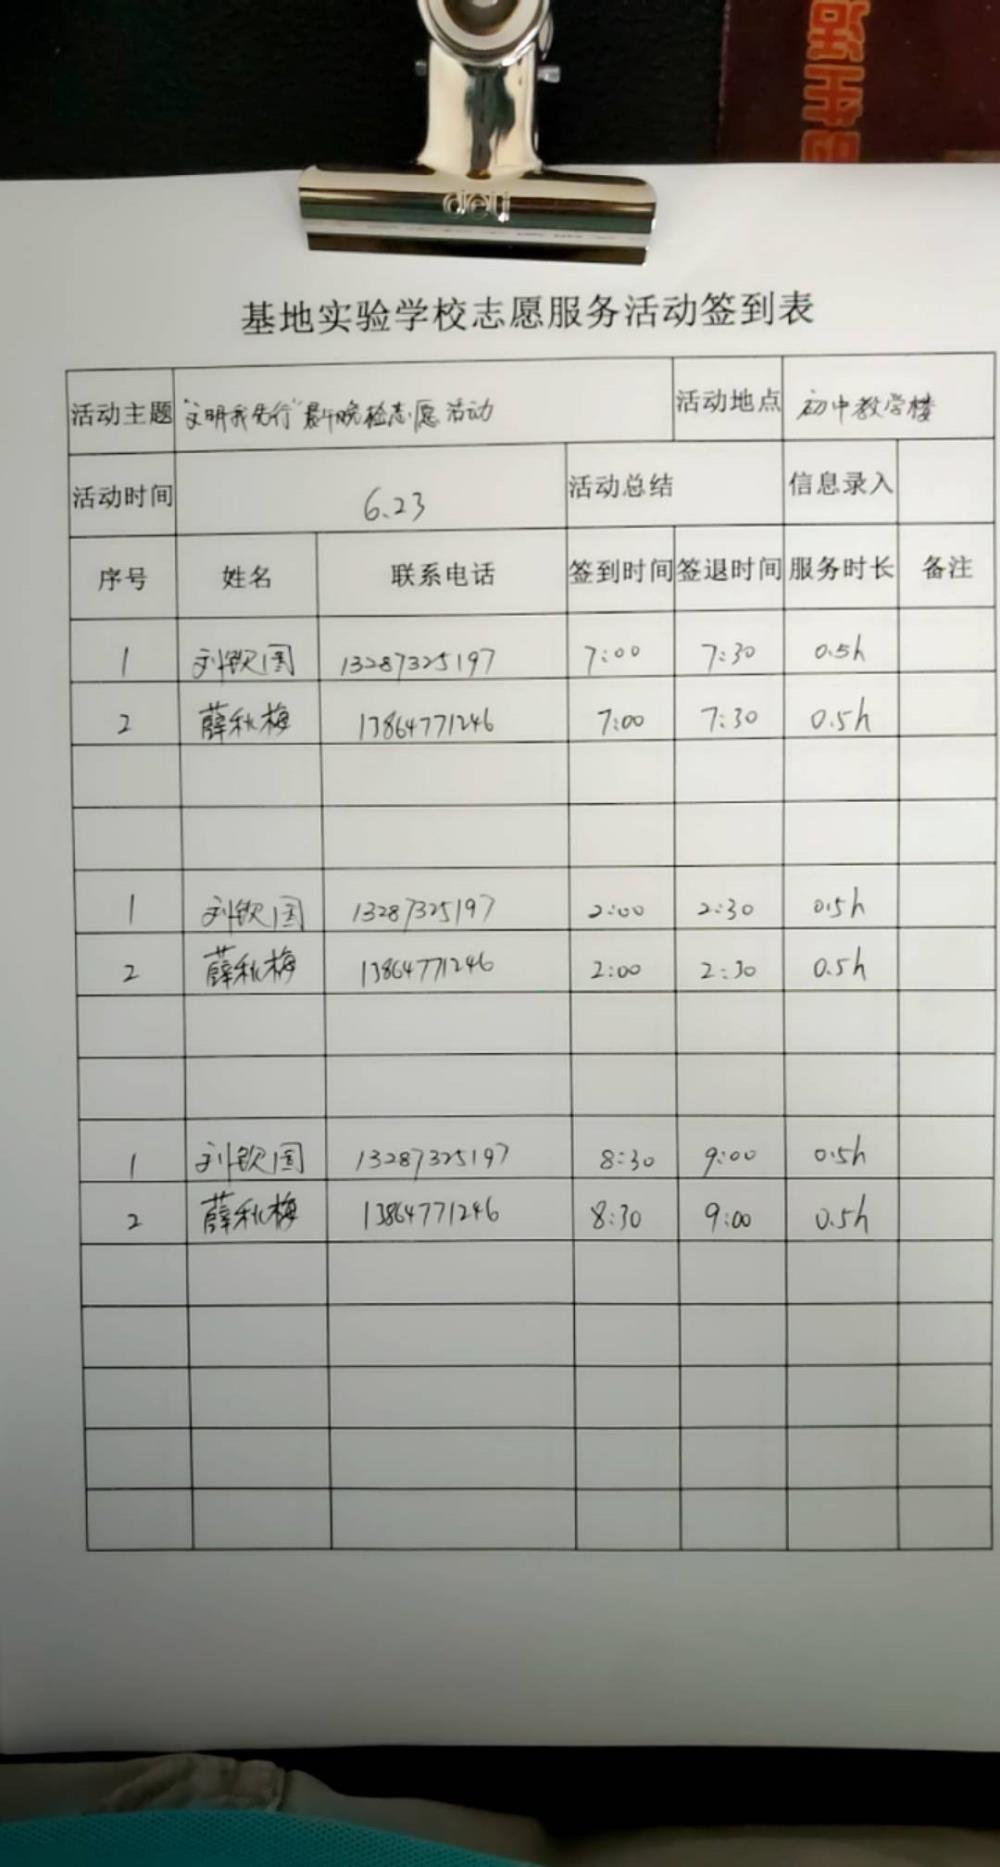 deli
基地实验学校志愿服务活动签到表
活动主题 "文明我先行"晨午晚检志愿活动 活动地点 初中教学楼
活动时间 6.23 活动总结 信息录入
序号 姓名 联系电话 签到时间 签退时间 服务时长 备注
1 刘钦国 13287325197 7:00 7:30 0.5h
2 薛秋梅 13864771246 7:00 7:30 0.5h
1 刘钦国 13287325197 2:00 2:30 0.5h
2 薛秋梅 13864771246 2:00 2:30 0.5h
1 刘钦国 13287325197 8:30 9:00 0.5h
2 薛秋梅 13864771246 8:30 9:00 0.5h